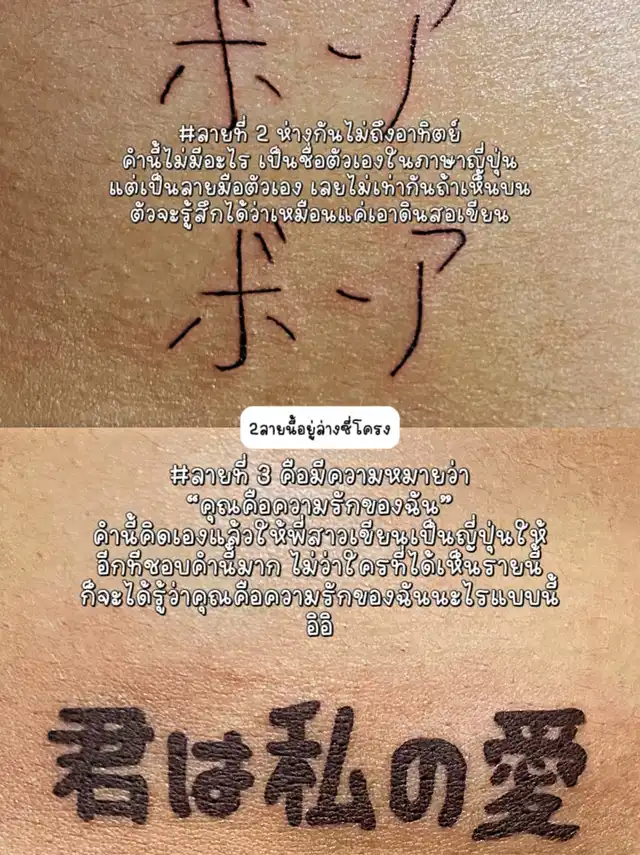 ボア
#ลายที่ 2 ห่างกันไม่ถึงอาทิตย์
คำนี้ไม่มีอะไร เป็นชื่อตัวเองในภาษาญี่ปุ่น
แต่เป็นลายมือตัวเอง เลยไม่เท่ากันถ้าเห็นบน
ตัวจะรู้สึกได้ว่าเหมือนแค่เอาดินสอเขียน
ボア
2ลายนี้อยู่ล่างซี่โครง
#ลายที่ 3 คือมีความหมายว่า
“คุณคือความรักของฉัน”
คำนี้คิดเองแล้วให้พี่สาวเขียนเป็นญี่ปุ่นให้
อีกทีชอบคำนี้มาก ไม่ว่าใครที่ได้เห็นรายนี้
ก็จะได้รู้ว่าคุณคือความรักของฉันนะไรแบบนี้
อิอิ
君は私の愛